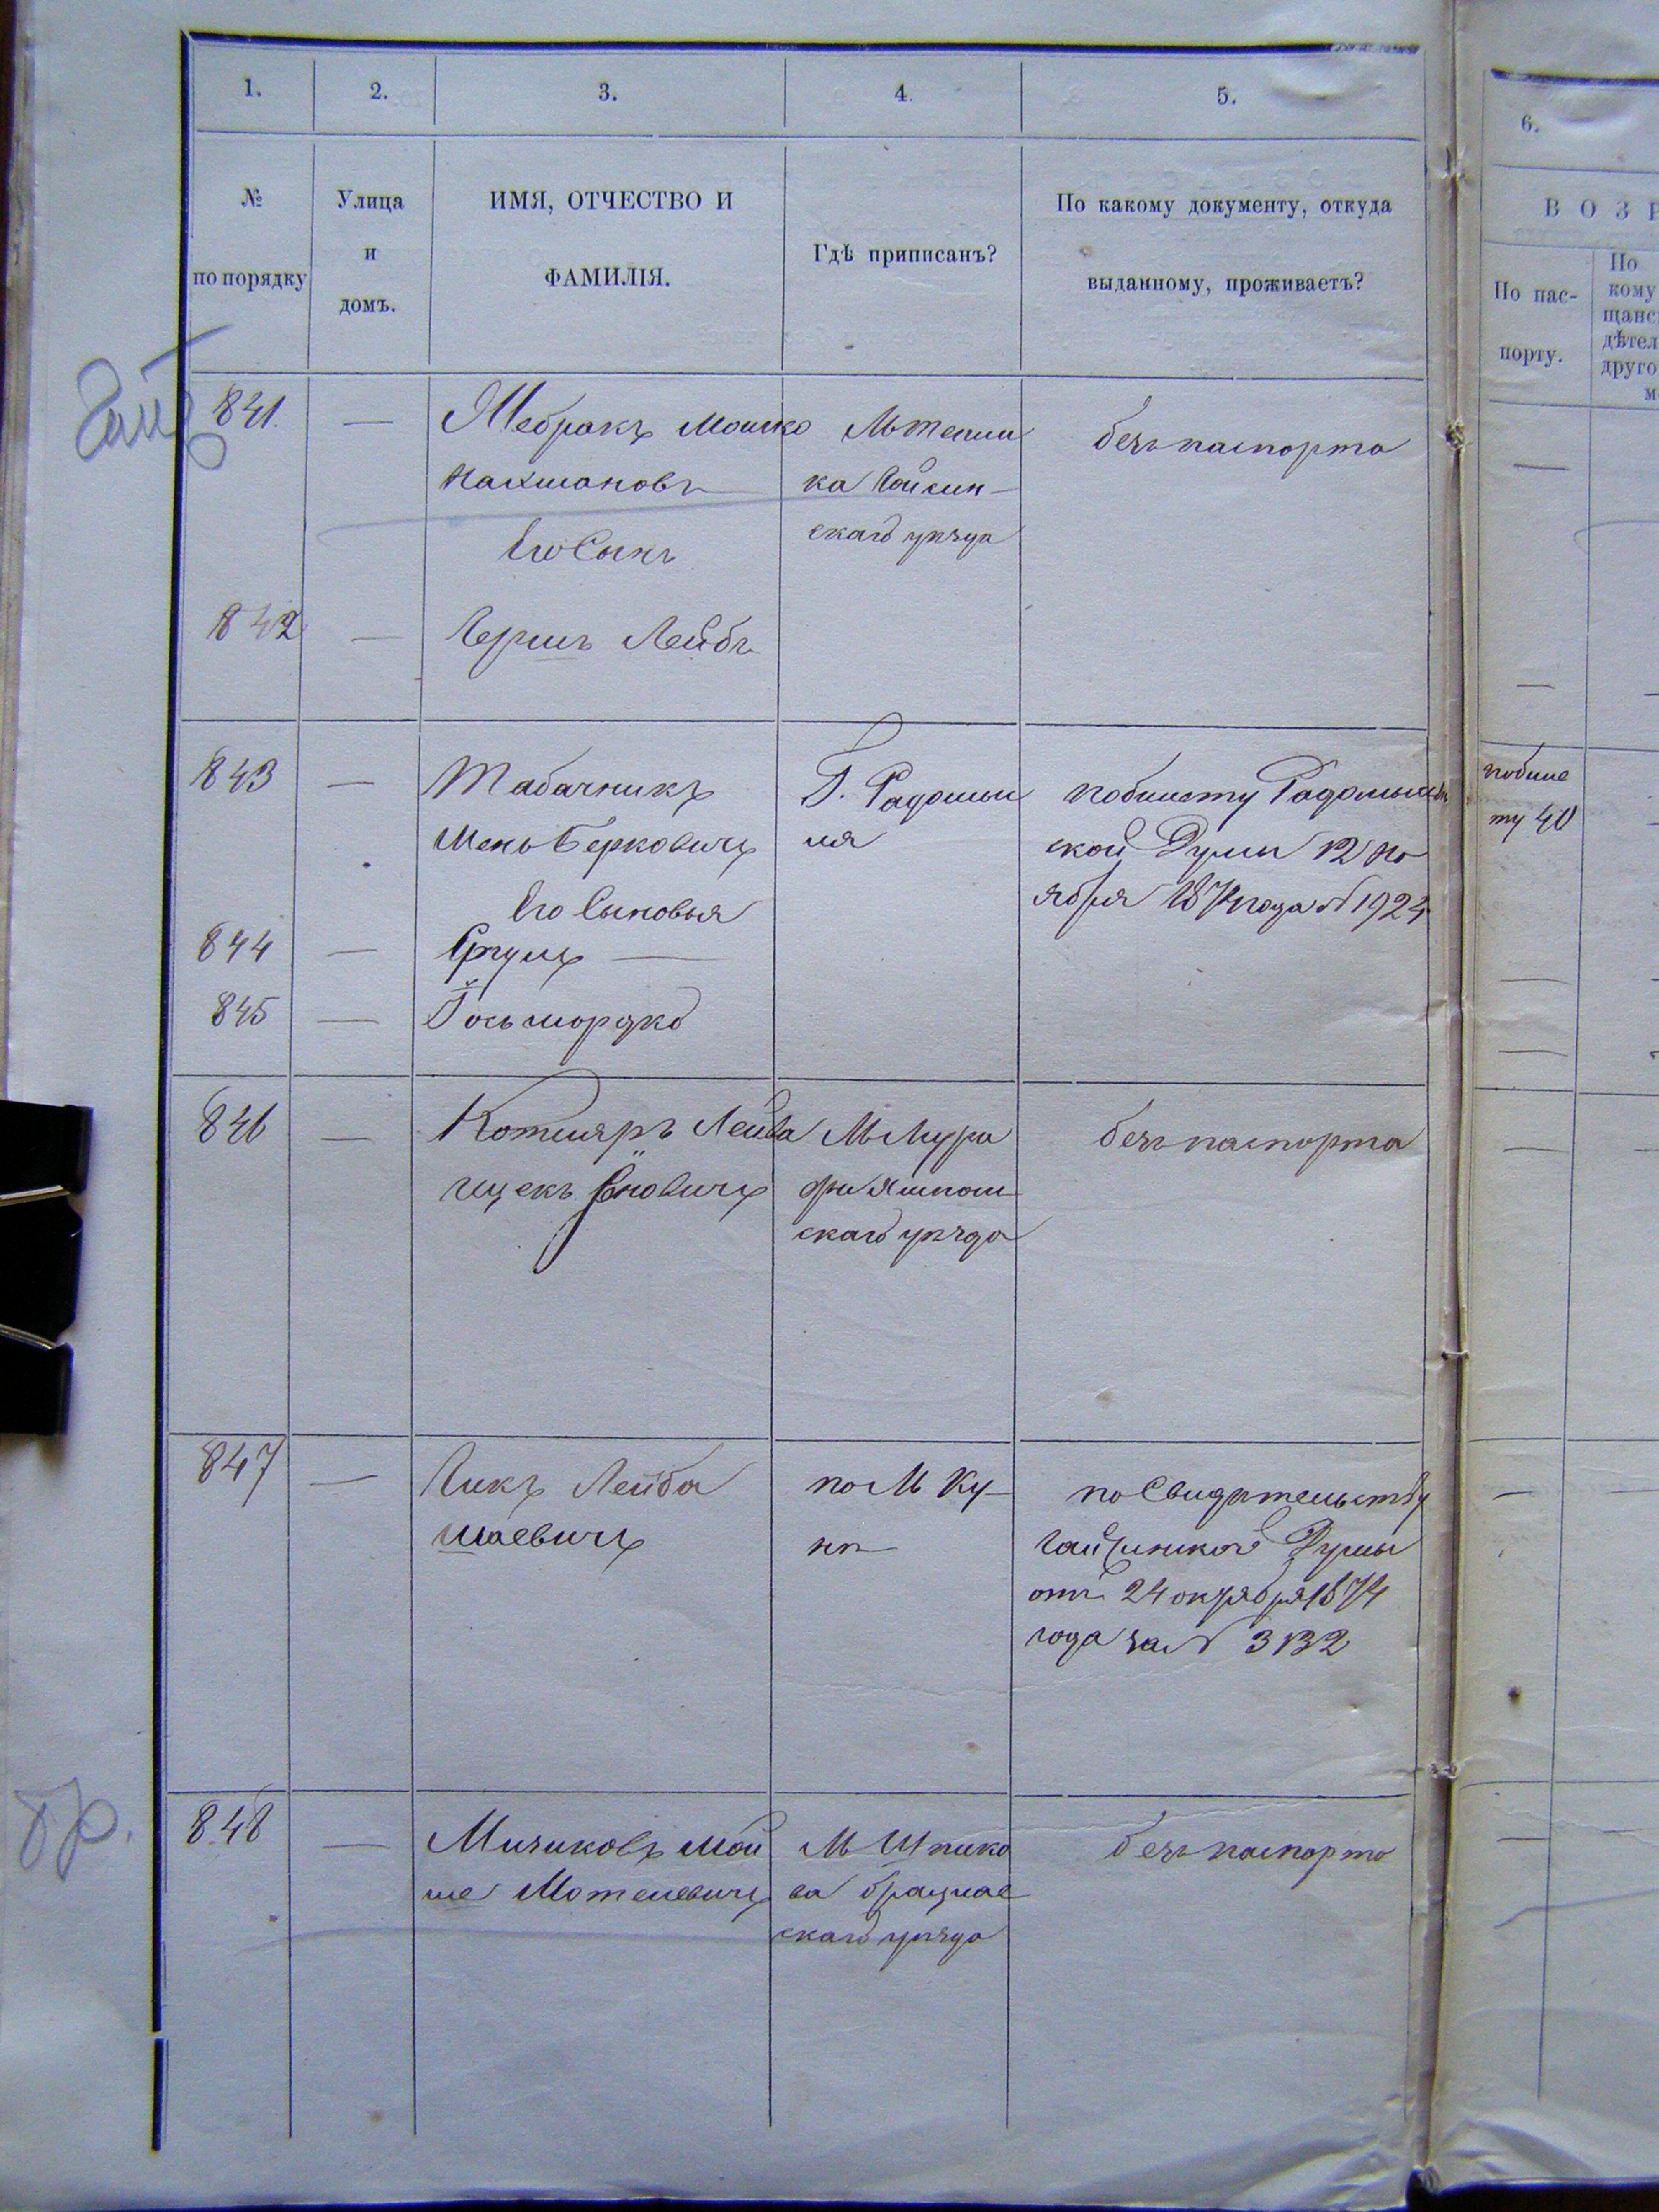 1. 2. 3. 4. 5. 6.
№ по порядку
Улица и домъ.
ИМЯ, ОТЧЕСТВО И ФАМИЛІЯ.
Гдѣ приписанъ?
По какому документу, откуда выданному, проживаетъ?
ВОЗР
По пас-
порту.
По
кому
щанс
дѣтел
друго
м
841. — Жебракъ Мошко
Нахмановъ
скаго уѣзда
безъ паспорта
Его Сынъ
842 — Гершъ Лейбъ
843 — Табачникъ
Беркович
Г. Радомыс
ля
по билету Радомысль
ской Думы 12 но
ября года № 1924
по биле
ту 40
Его Сыновья
844 — Сруль —
845 —
846 — Котляръ Лейба
Ицекъ
скаго уѣзда
безъ паспорта
847 — Лейба
Шаевичъ
по М Ку-
нѣ
по Свидѣтельству
Думы
отъ 24 октября 1874
года за №
848 — Мой
ше Мотелевичъ
М Шпико
ва брацлав
скаго уѣзда
безъ паспорта